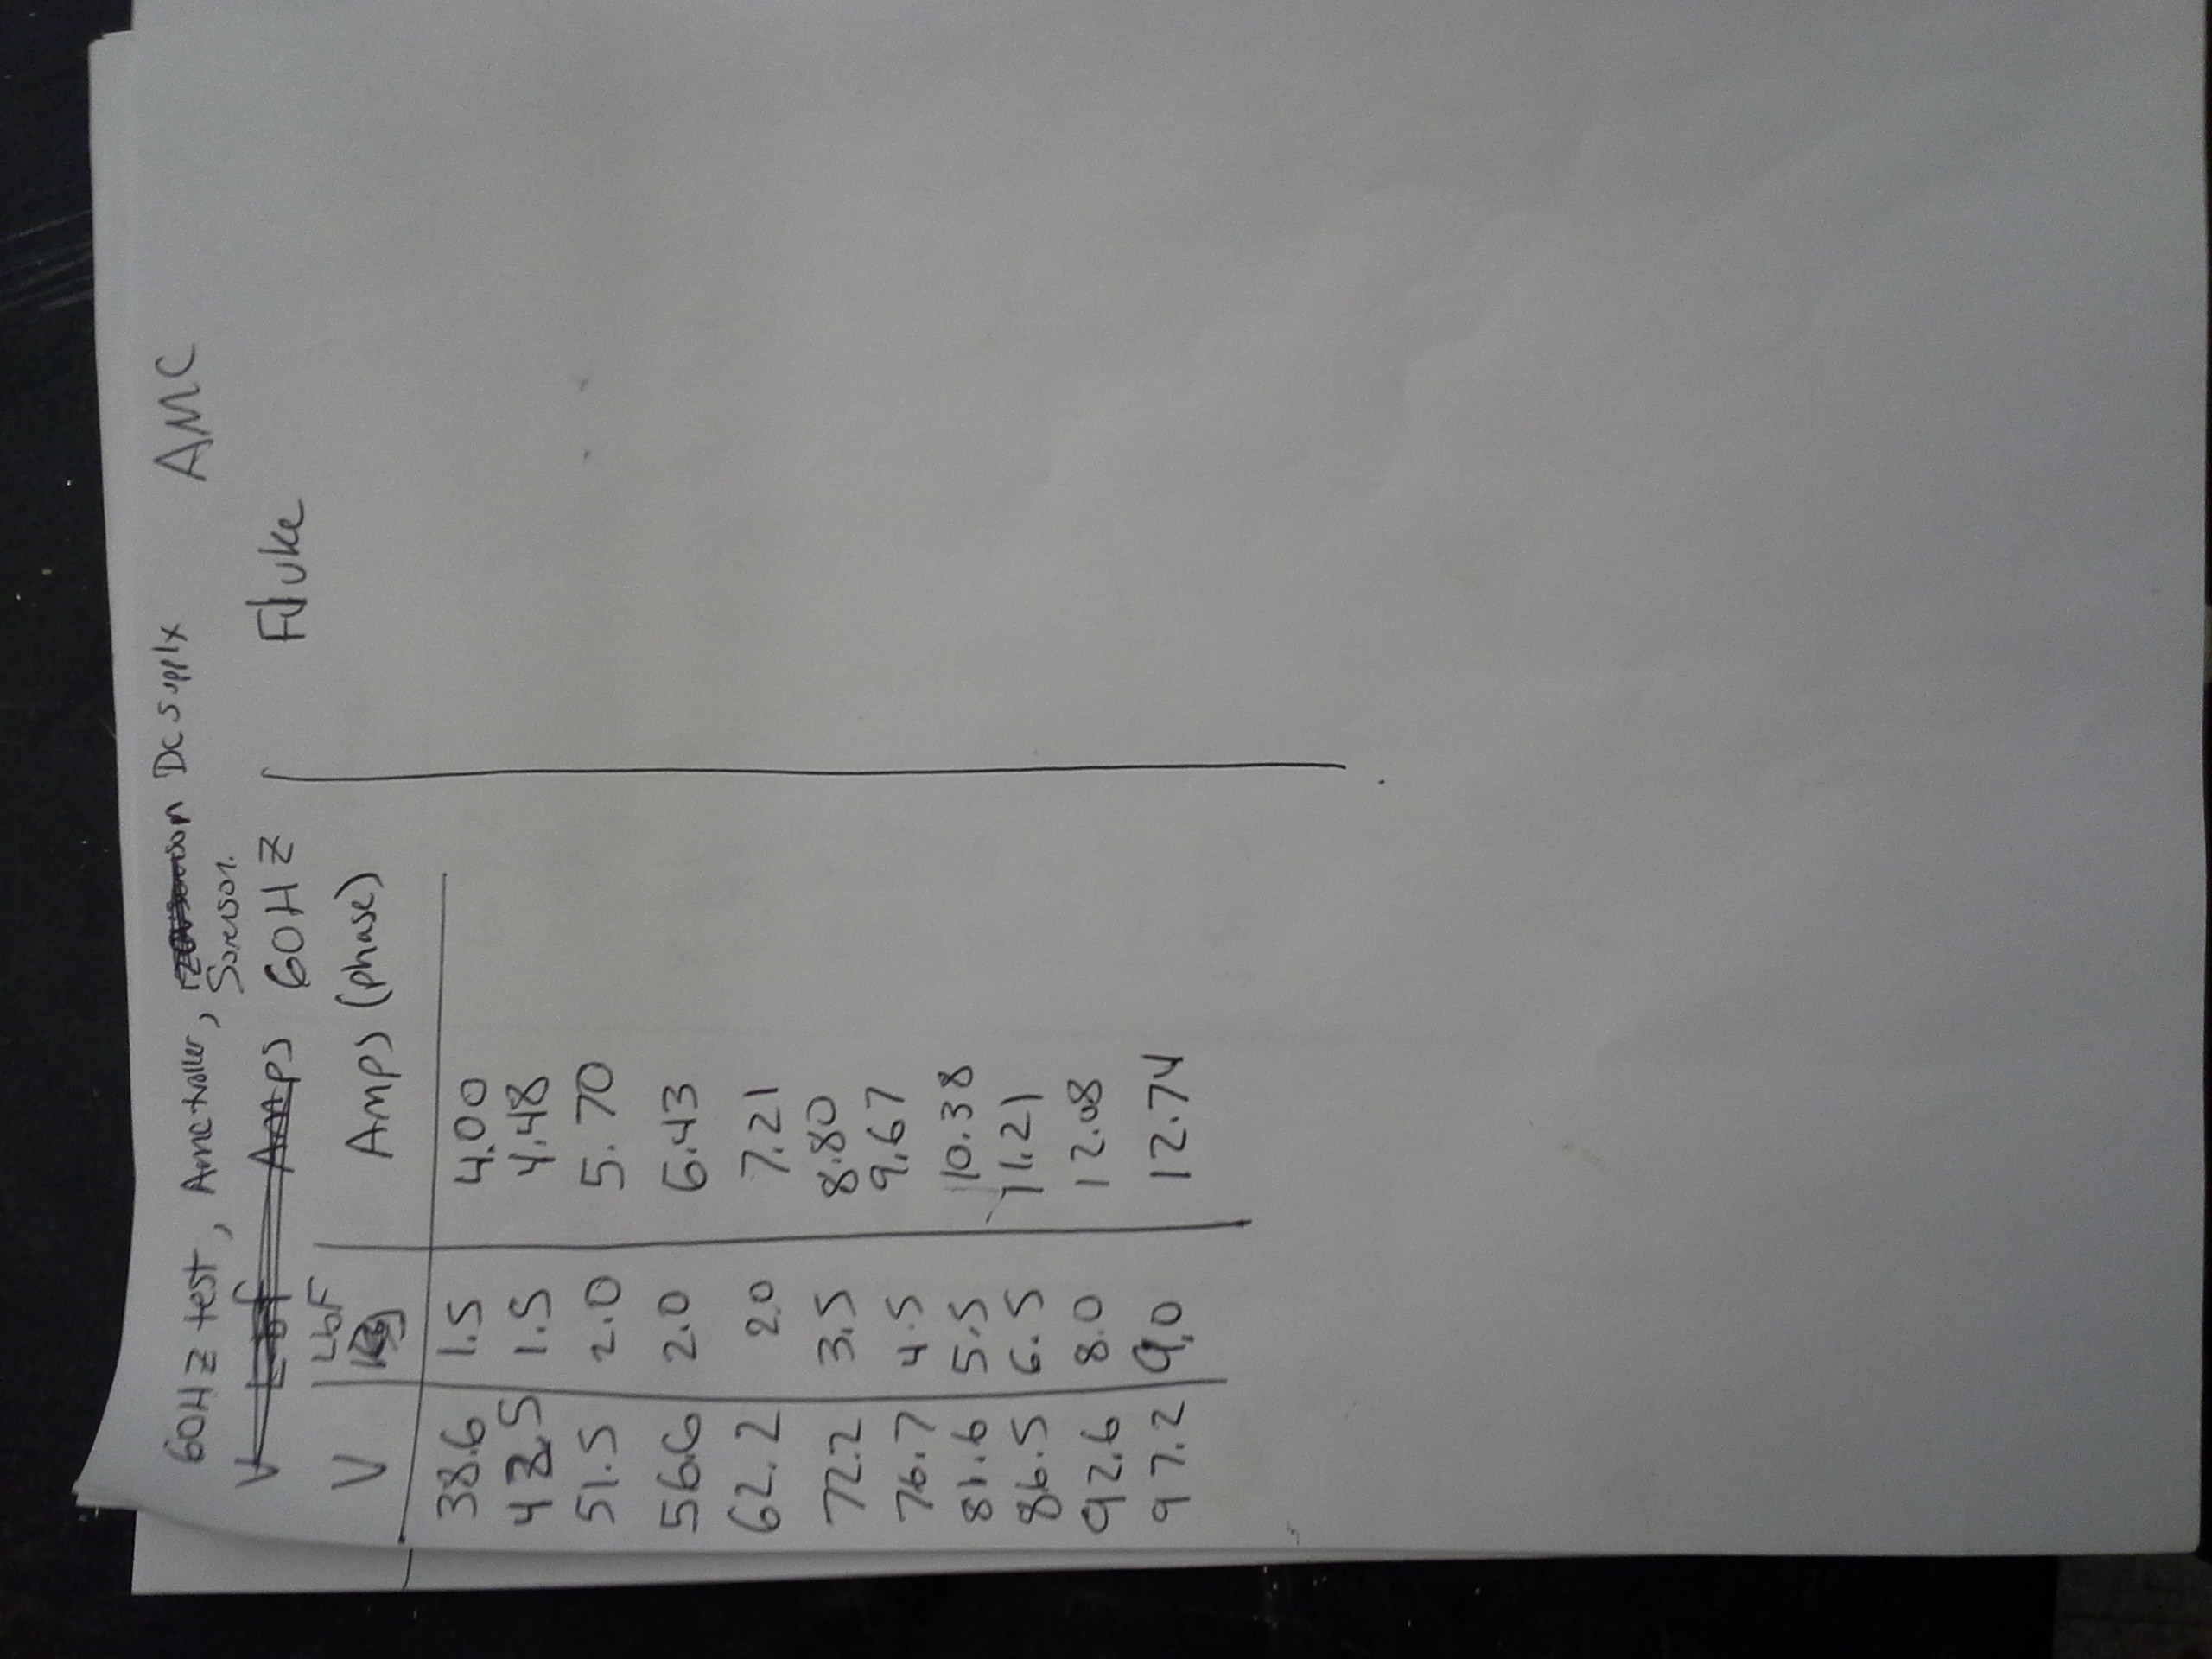 60HZ test, Amctroller, DC supply AMC
Sorenson.
V Lbf Amps 60HZ Fluke
V LbF Amps (phase)
38.6 1.5 4.00
43.5 1.5 4.48
51.5 2.0 5.70
56.6 2.0 6.43
62.2 2.0 7.21
72.2 3.5 8.80
76.7 4.5 9.67
81.6 5.5 10.38
86.5 6.5 11.21
92.6 8.0 12.08
97.2 9.0 12.74